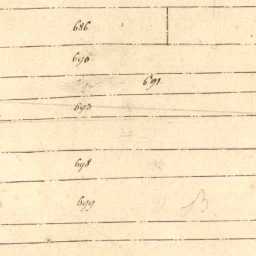 686
696
691
693
698
699
B